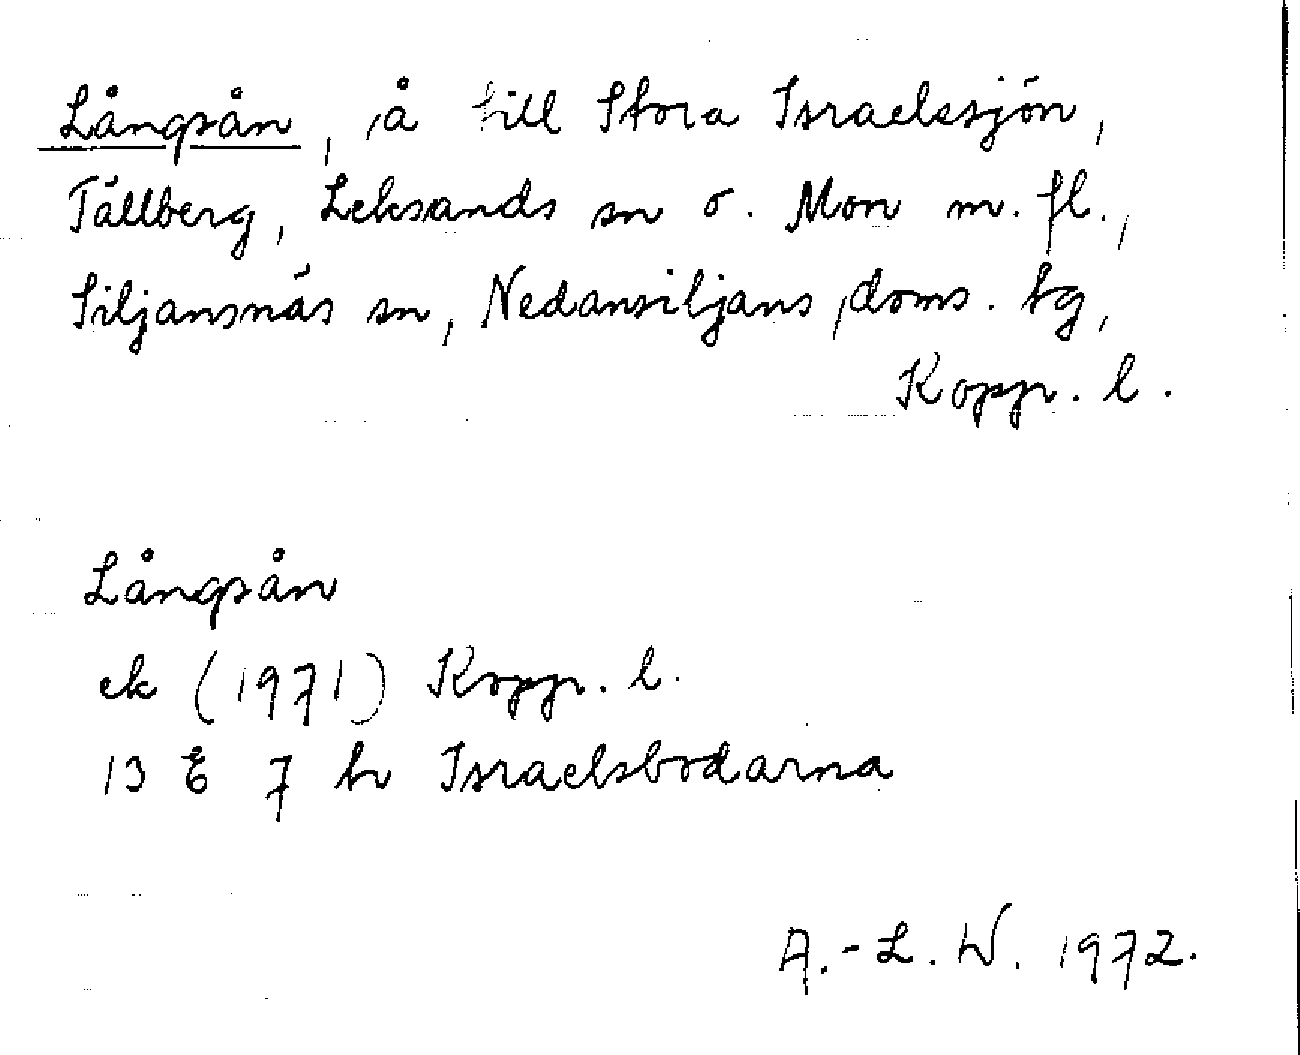 Långsån, å till Stora Israelssjön,
Tällberg, Leksands sn o. Mon m. fl.,
Siljansnäs sn, Nedansiljans doms. tg,
Kopp. l.
Långsån
ek (1971) Kopp. l.
13 E 7 h Israelsbodarna
A.-L. W. 1972.